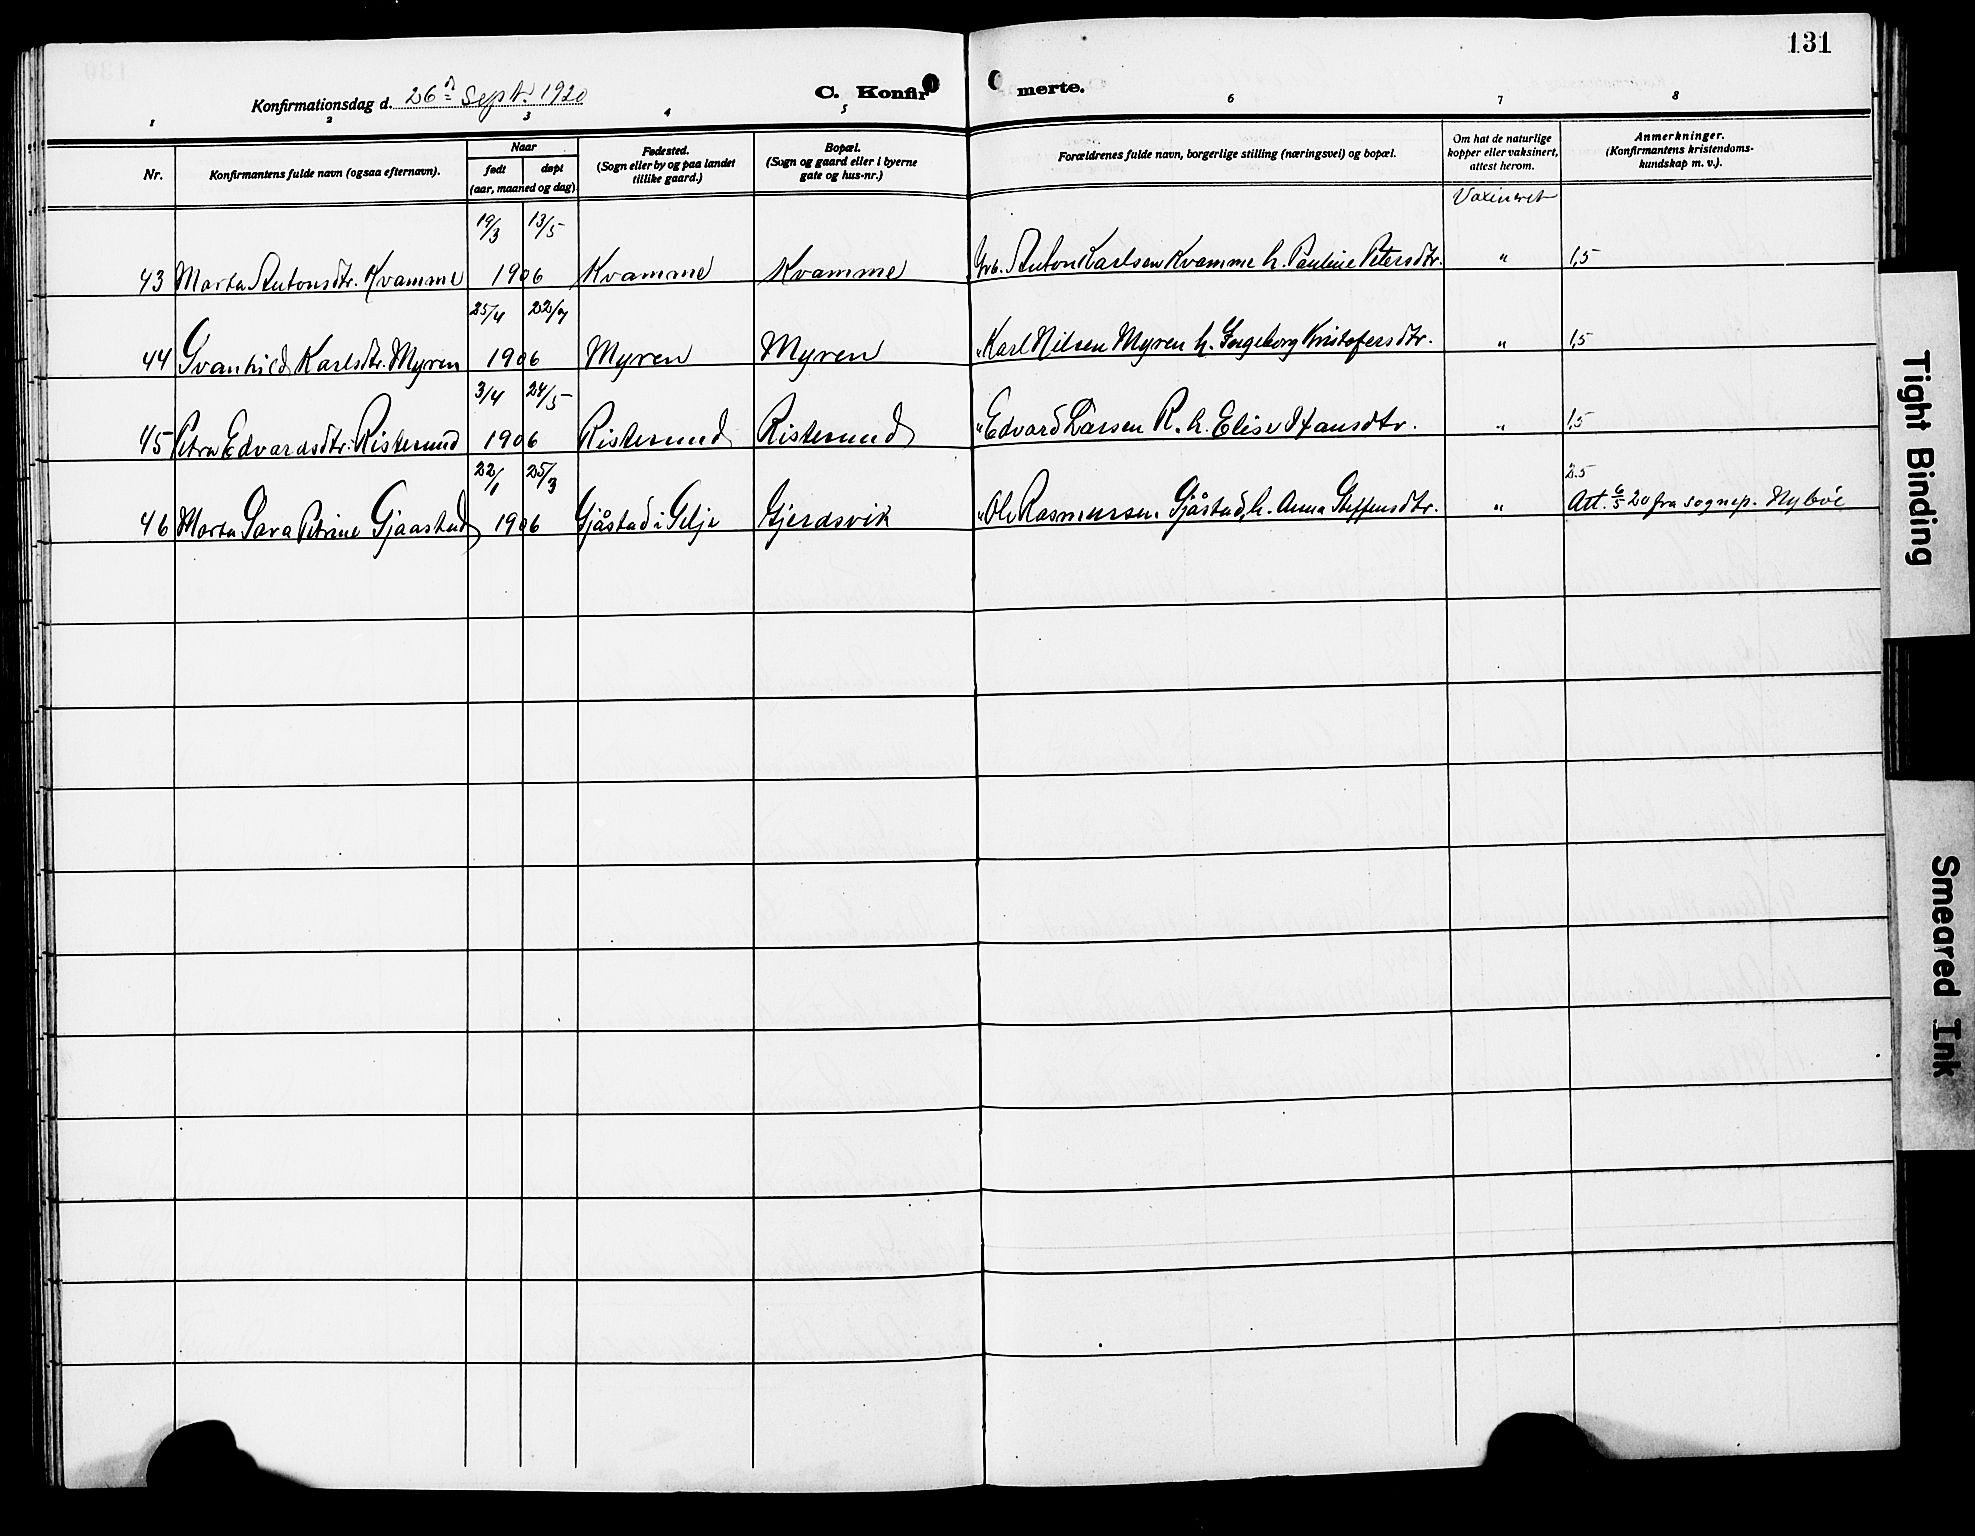 131
Konfirmationsdag d. 26de Sept. 1920
C. Konfir merte.
1 2 3 4 5 6 7 8
Nr.
Konfirmantens fulde navn (ogsaa efternavn).
Naar
født døpt
(aar, maaned og dag)
Fødested.
(Sogn eller by og paa landet
tillike gaard.)
Bopæl.
(Sogn og gaard eller i byerne
gate og hus-nr.)
Forældrenes fulde navn, borgerlige stilling (næringsvei) og bopæl.
Om hat de naturlige
kopper eller vaksinert,
attest herom.
Anmerkninger.
(Konfirmantens kristendoms-
kundskap m. v.).
Vaxineret
19/3 13/5
43 Marta Antonsdtr. Kvamme 1906 Kvamme Kvamme Anton Karlsen Kvamme h. Pauline Petersdtr. " 1,5
25/4 22/7
44 Svanhild Karlsdtr. Myren 1906 Myren Myren " Karl Nilsen Myren h. Ingeborg Kristofersdtr. " 1,5
3/4 24/5
45 Petra Edvardsdtr. Risterund 1906 Risterund Risterund " Edvard Larsen R. h. Elise Hansdtr. " 1,5
22/1 25/3 2.5
46 Marta Sara Petrine Gjaastad 1906 Gjåstad i Selje Gjerdsvik " Ole Rasmussen Gjåstad, h. Anna Steffensdtr. " Att. 6/5 20 fra sognep. Nybøe
Tight Binding
Smeared Ink